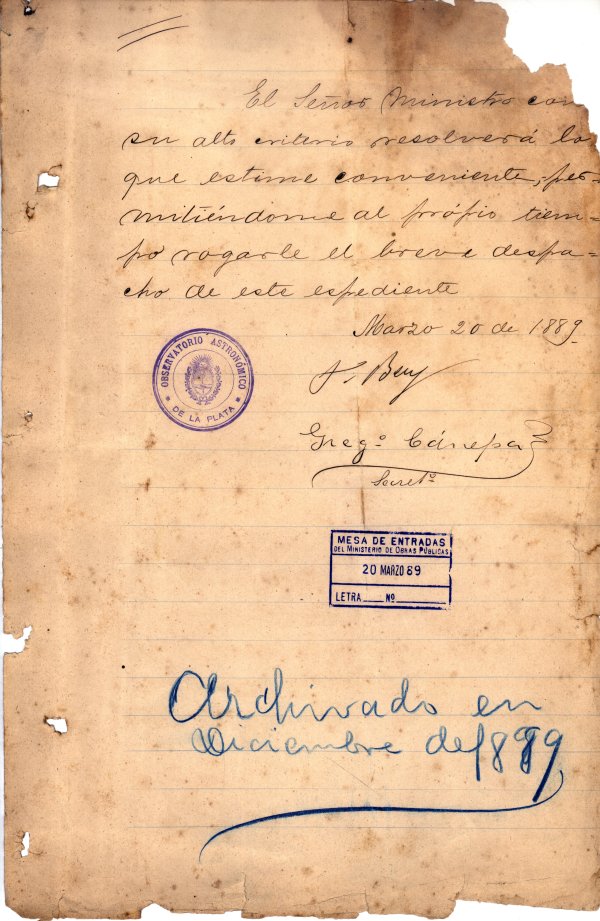 El Señor Ministro con
su alto criterio resolverá lo
que estime conveniente, per-
mitiéndome al própio tiem-
po rogarle el breve despa-
cho de este espediente
Marzo 20 de 1889
OBSERVATORIO ASTRONÓMICO
DE LA PLATA
F. Beuf
Gregº Cánepa
Secretº
MESA DE ENTRADAS
DEL MINISTERIO DE OBRAS PÚBLICAS
20 MARZO 89
LETRA Nº
Archivado en
Diciembre de